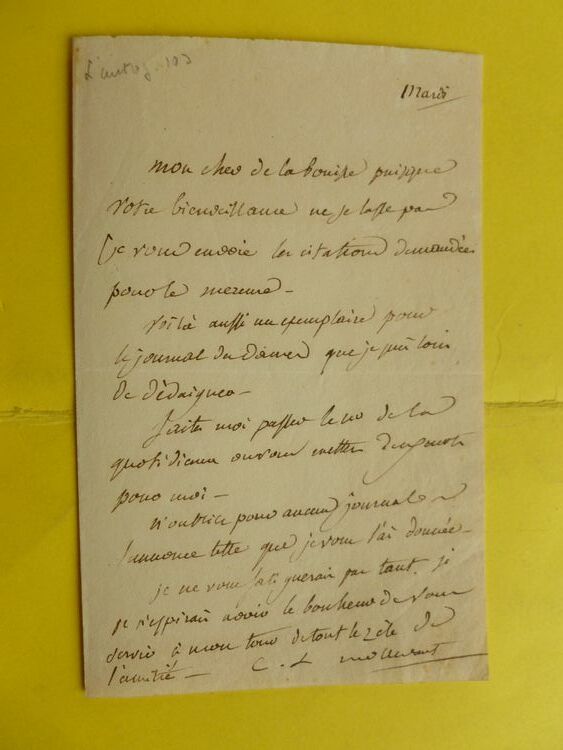 Mardi
mon cher de la Bouisse puisque
votre bienveillance ne se lasse pas
je vous envoie les citations demandées
pour le mercure -
voilà aussi un exemplaire pour
le journal des dames que je suis loin
de dédaigner -
faites moi passer le no de la
quotidienne où vous mettez
pour moi -
n'oubliez pour aucun journal
l'annonce telle que je vous l'ai donnée -
je ne vous fatiguerais pas tant, si
je n'espérais avoir le bonheur de vous
servir à mon tour de tout le zèle de
l'amitié - C. L. mollevaut